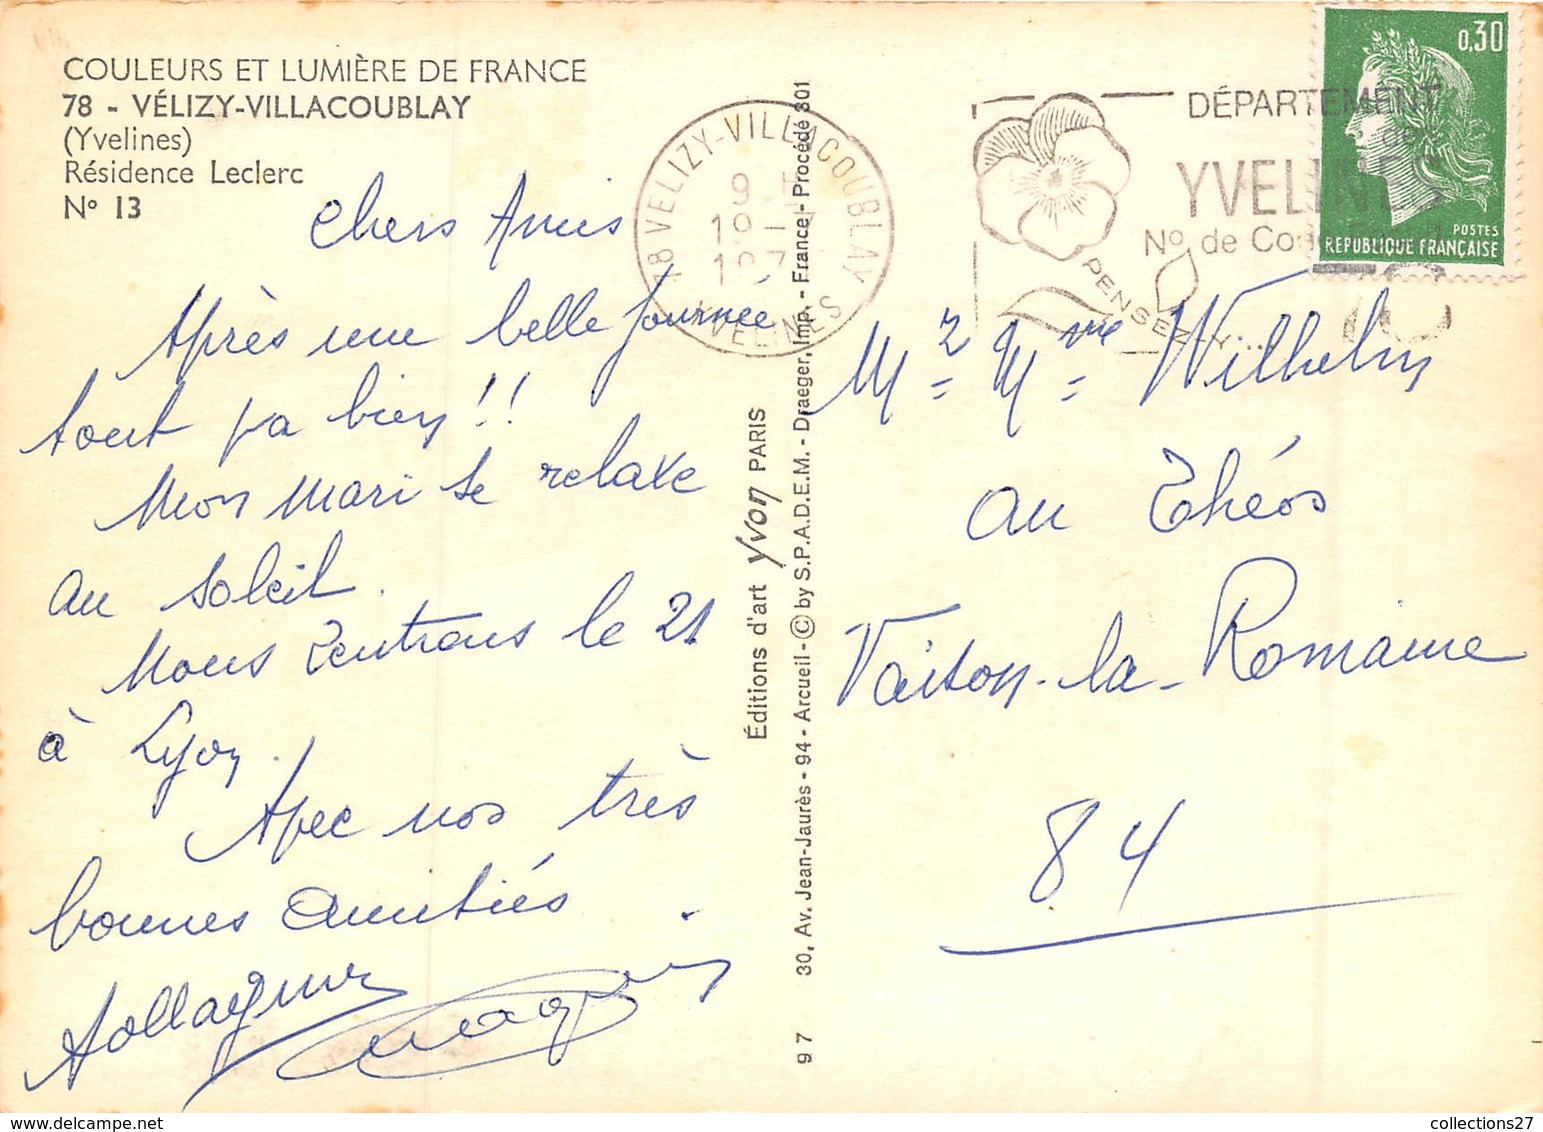 COULEURS ET LUMIÈRE DE FRANCE
78 - VÉLIZY-VILLACOUBLAY
(Yvelines)
Résidence Leclerc
N° 13
Chers Amis
Après une belle journée
tout va bien !!
Mon mari se relaxe
au soleil.
Nous rentrons le 21
à Lyon.
Avec nos très
bonnes amitiés
Éditions d'art Yvon PARIS
30, Av. Jean-Jaurès - 94 - Arcueil - © by S.P.A.D.E.M. - Draeger, Imp. - France - Procédé 301
97
78 VELIZY-VILLACOUBLAY
YVELINES
DÉPARTEMENT
des
YVELINES
N° de Code
78
PENSEZ-Y...
0,30
POSTES
REPUBLIQUE FRANÇAISE
Mr Mme Wilhelm
au Théos
Vaison-la-Romaine
84
collections27